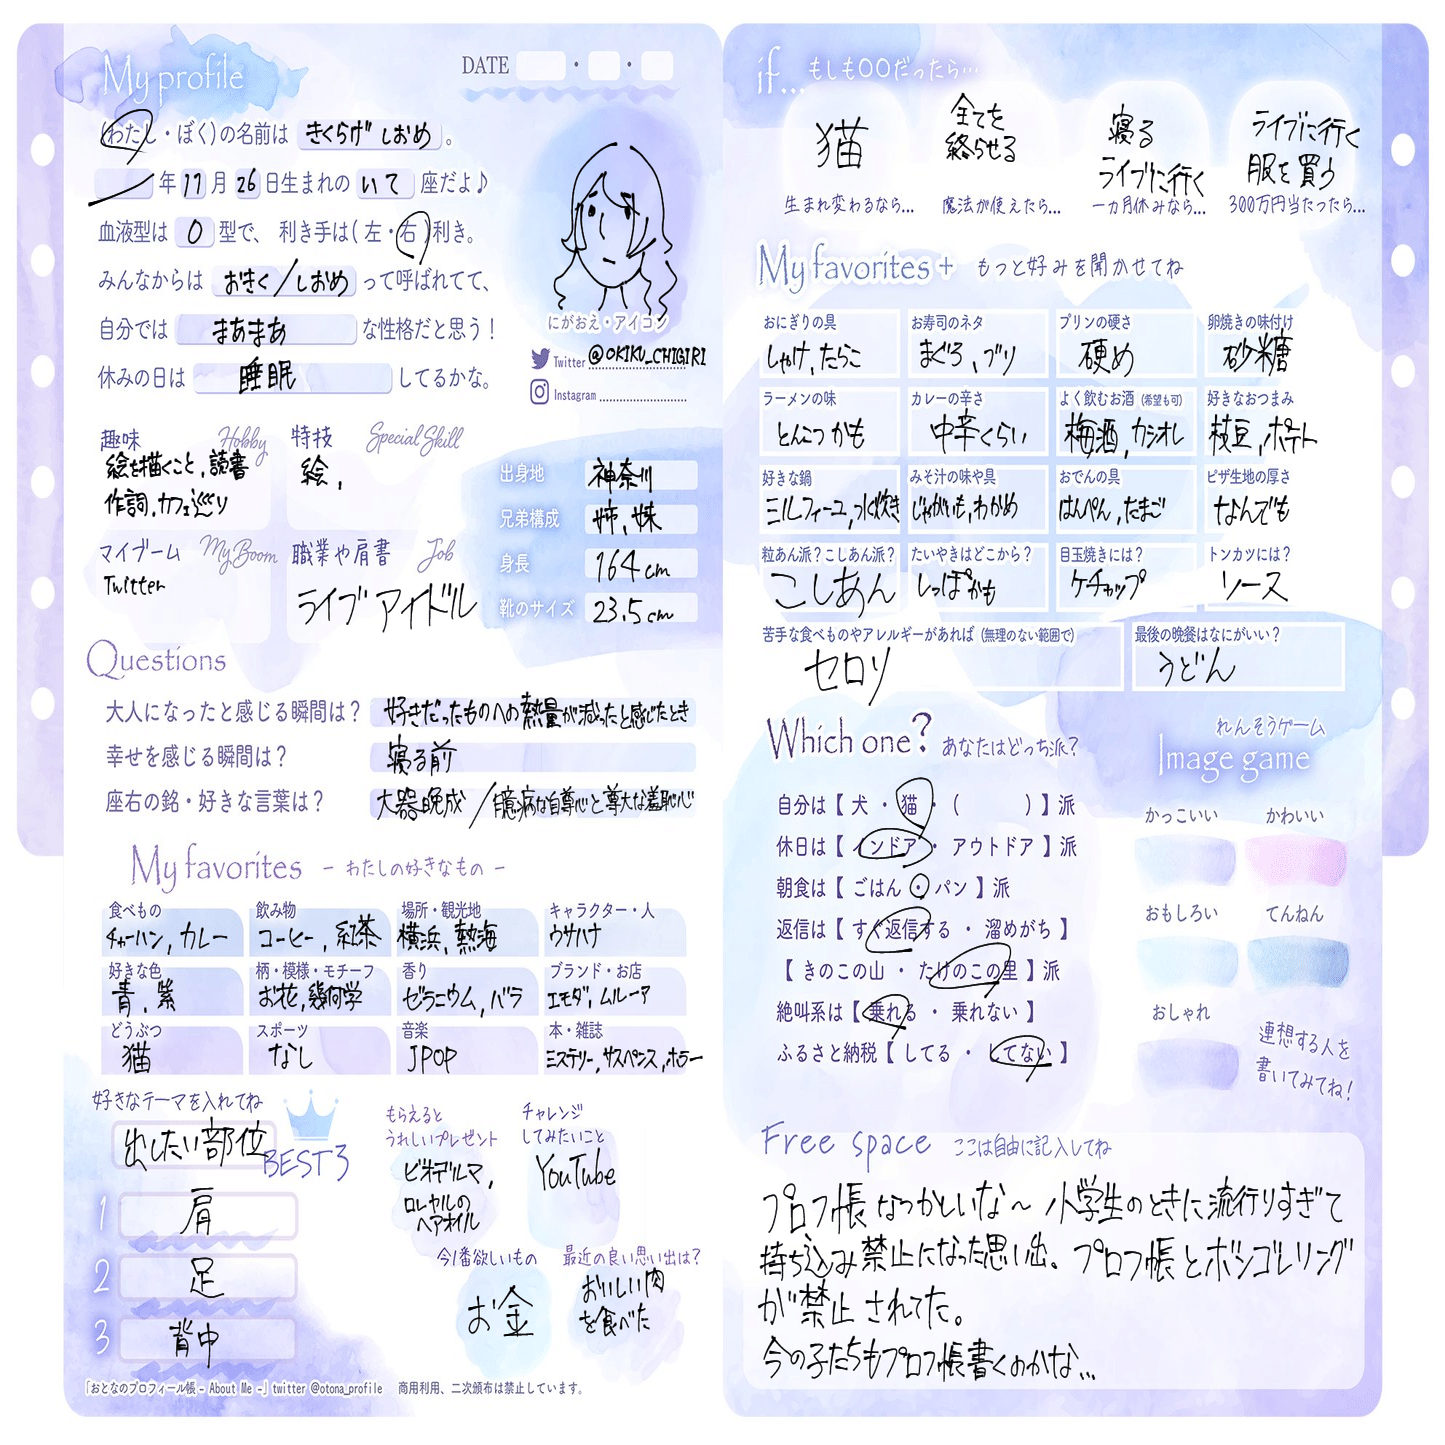 My profile
DATE ・ ・
(わたし・ぼく)の名前は きくらげ しおめ 。
年 11 月 26 日生まれの いて 座だよ♪
血液型は O 型で、 利き手は(左・右)利き。
みんなからは おきく/しおめ って呼ばれてて、
自分では まあまあ な性格だと思う!
休みの日は 睡眠 してるかな。
にがおえ・アイコン
Twitter @OKIKU_CHIGIRI
Instagram
趣味 Hobby
絵を描くこと,読書
作詞,カフェ巡り
特技 Special Skill
絵,
マイブーム My Boom
Twitter
職業や肩書 Job
ライブアイドル
出身地 神奈川
兄弟構成 姉、妹
身長 164cm
靴のサイズ 23.5cm
Questions
大人になったと感じる瞬間は? 好きだったものへの熱量が減ったと感じたとき
幸せを感じる瞬間は? 寝る前
座右の銘・好きな言葉は? 大器晩成/臆病な自尊心と尊大な羞恥心
My favorites - わたしの好きなもの -
食べもの 飲み物 場所・観光地 キャラクター・人
チャーハン,カレー コーヒー,紅茶 横浜,熱海 ウサハナ
好きな色 柄・模様・モチーフ 香り ブランド・お店
青,紫 お花,幾何学 ゼラニウム,バラ エモダ,ムルーア
どうぶつ スポーツ 音楽 本・雑誌
猫 なし JPOP ミステリー,サスペンス,ホラー
好きなテーマを入れてね
出したい部位
BEST3
1 肩
2 足
3 背中
もらえると
うれしいプレゼント
ビオデルマ,
ロレヤルの
ヘアオイル
チャレンジ
してみたいこと
YouTube
今1番欲しいもの
お金
最近の良い思い出は?
おいしい肉
を食べた
「おとなのプロフィール帳 - About Me -」 twitter @otona_profile 商用利用、二次頒布は禁止しています。
if... もしも〇〇だったら…
猫
生まれ変わるなら…
全てを
終らせる
魔法が使えたら…
寝る
ライブに行く
一カ月休みなら…
ライブに行く
服を買う
300万円当たったら…
My favorites + もっと好みを聞かせてね
おにぎりの具 お寿司のネタ プリンの硬さ 卵焼きの味付け
しゃけ,たらこ まぐろ、ブリ 硬め 砂糖
ラーメンの味 カレーの辛さ よく飲むお酒(希望も可) 好きなおつまみ
とんこつかも 中辛くらい 梅酒,カシオレ 枝豆,ポテト
好きな鍋 みそ汁の味や具 おでんの具 ピザ生地の厚さ
ミルフィーユ,水炊き じゃがいも,わかめ はんぺん,たまご なんでも
粒あん派?こしあん派? たいやきはどこから? 目玉焼きには? トンカツには?
こしあん しっぽかも ケチャップ ソース
苦手な食べものやアレルギーがあれば(無理のない範囲で) 最後の晩餐はなにがいい?
セロリ うどん
Which one? あなたはどっち派?
自分は【 犬 ・ 猫 ・ ( ) 】派
休日は【 インドア ・ アウトドア 】派
朝食は【 ごはん ・ パン 】派
返信は【 すぐ返信する ・ 溜めがち 】
【 きのこの山 ・ たけのこの里 】派
絶叫系は【 乗れる ・ 乗れない 】
ふるさと納税【 してる ・ してない 】
れんそうゲーム
Image game
かっこいい かわいい
おもしろい てんねん
おしゃれ
連想する人を
書いてみてね!
Free space ここは自由に記入してね
プロフ帳なつかしいな〜 小学生のときに流行りすぎて
持ち込み禁止になった思い出。プロフ帳とボシゴレリング
が禁止されてた。
今の子たちもプロフ帳書くのかな…